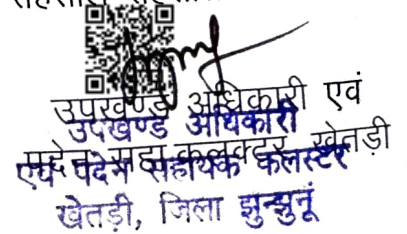 उपखण्ड अधिकारी एवं
उपखण्ड अधिकारी
पदेन सहा कलक्टर खेतड़ी
एवं पदेन सहायक कलक्टर
खेतड़ी, जिला झुन्झुनूं